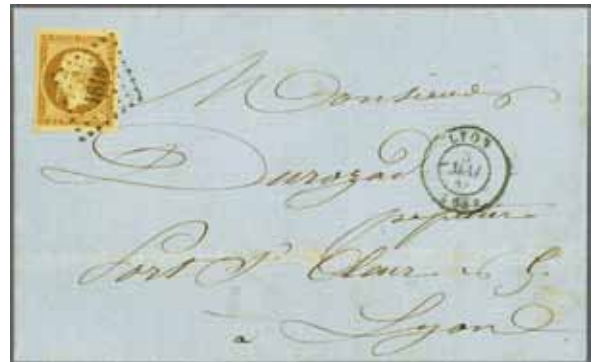 Monsieur
Durozad
LYON
MAI
Port St Clair
à Lyon